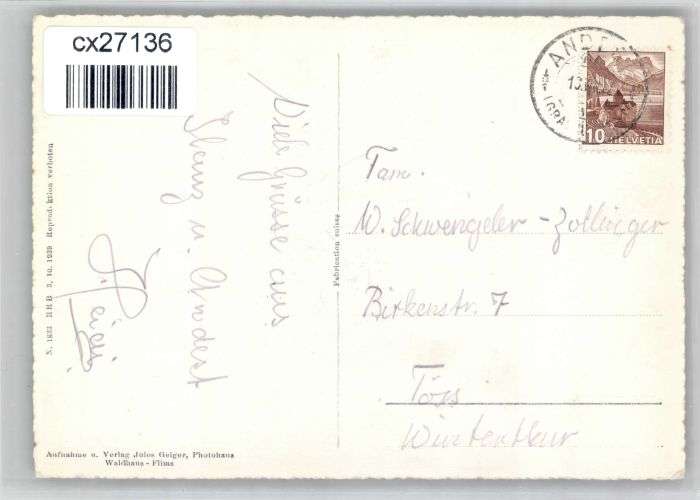 cx27136
Viele Grüsse aus
Ilanz u. Andest
Heidi
N. 1633 BRB 3. 10. 1939 Reproduktion verboten
Aufnahme u. Verlag Jules Geiger, Photohaus
Waldhaus - Flims
Fabrication suisse
ANDE
10
HELVETIA
Fam.
W. Schwengeler - Zollinger
Birkenstr. 7
Töss
Winterthur